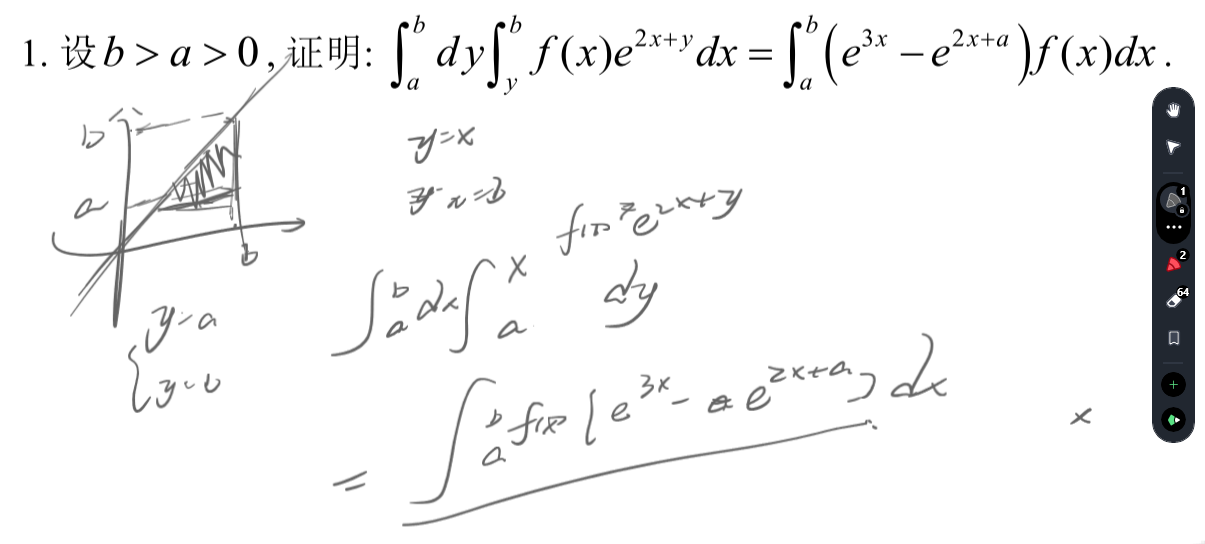 1. 设 b > a > 0 , 证明: ∫_a^b dy ∫_y^b f(x)e^{2x+y} dx = ∫_a^b (e^{3x} − e^{2x+a}) f(x)dx .
b
y=x
a
x=b
b
f(x) e^{2x+y}
∫_a^b dx ∫_a^x dy
{ y=a
y=b
= ∫_a^b f(x) [e^{3x} - e^{2x+a}] dx
x
1
2
64